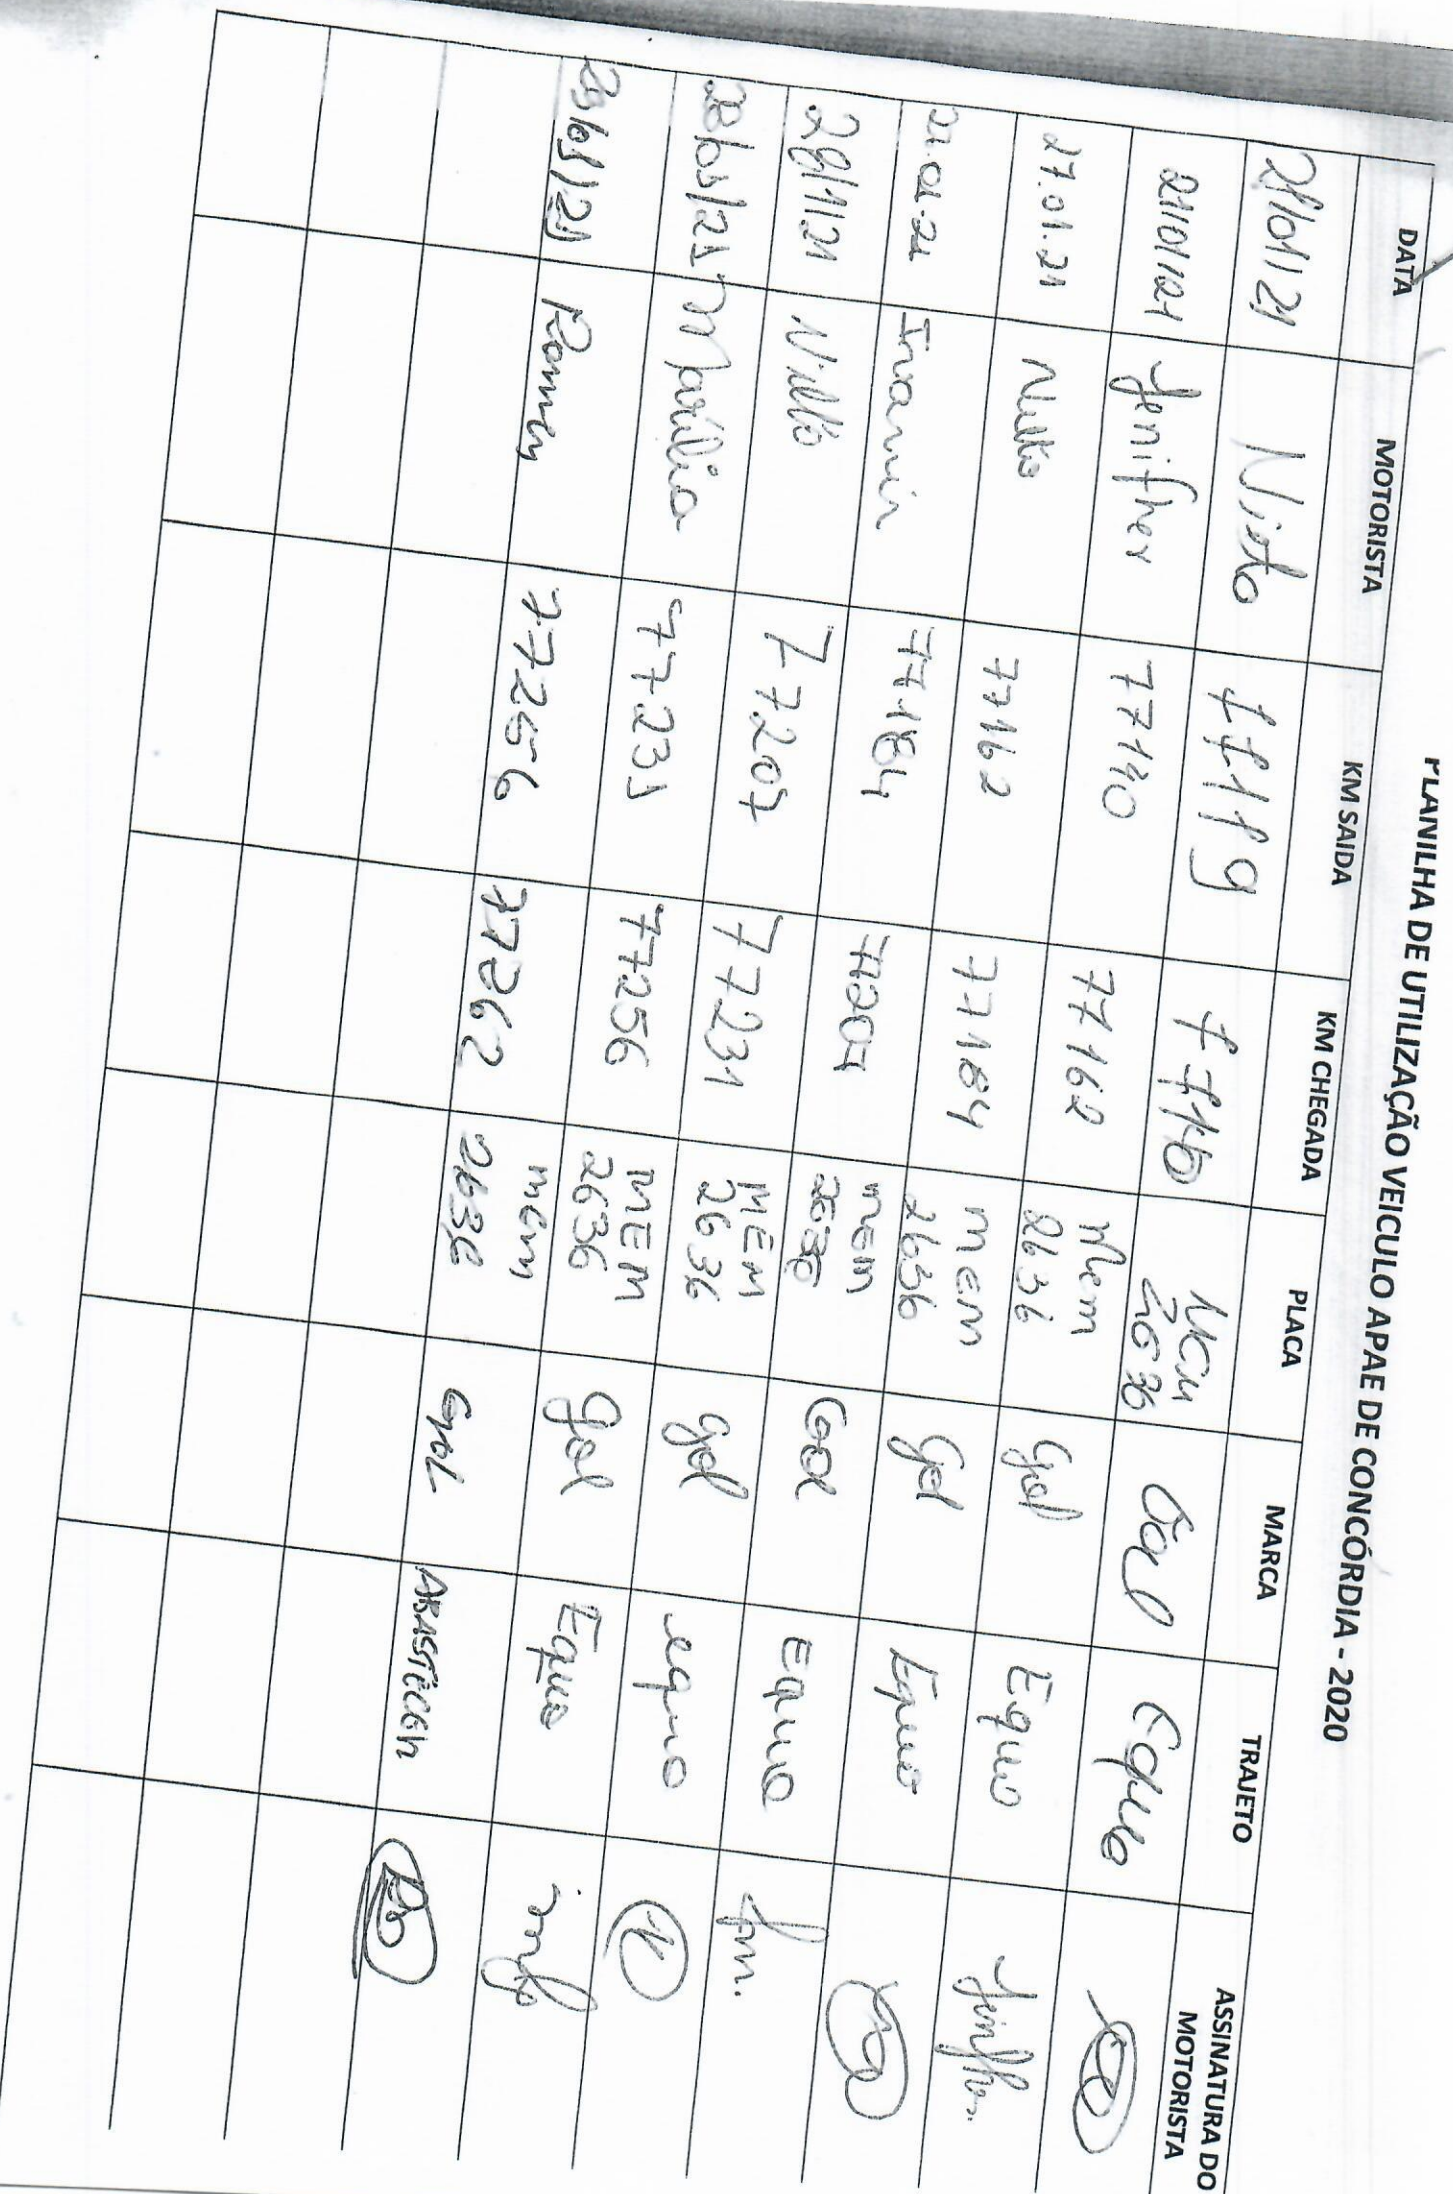 PLANILHA DE UTILIZAÇÃO VEICULO APAE DE CONCÓRDIA - 2020
DATA MOTORISTA KM SAIDA KM CHEGADA PLACA MARCA TRAJETO ASSINATURA DO MOTORISTA
21/01/21 77119 Gol Equo
21/01/21 Jenifher 77140 77162 Mem 2636 Gol Equo Jenifher
27.01.21 77162 77184 MEM 2636 Gol Equo
Ivanir 77184 77207 MEM Gol Equo
28/1/21 77207 77231 MEM 2636 gol equo
Marilia 77231 77256 MEM 2636 Gol Equo
77256 77262 MEM 2636 GOL ABASTECER